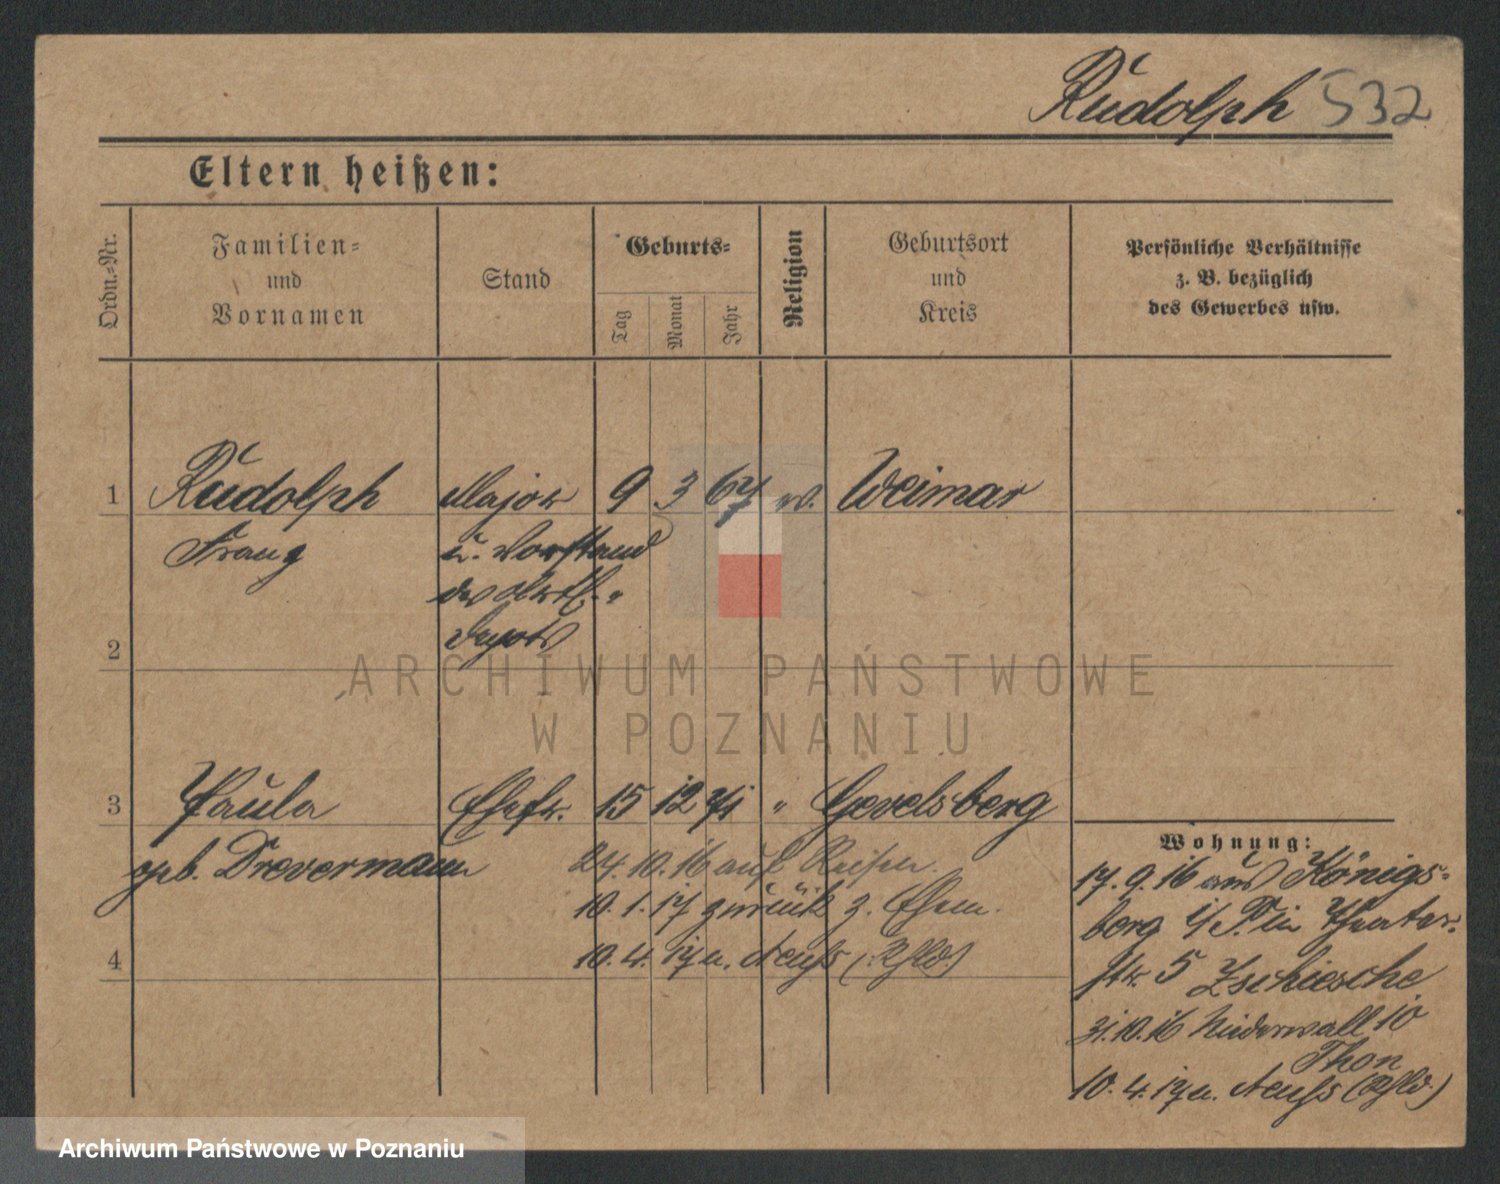 Rudolph 532
Eltern heißen:
Ordn.-Nr.
Familien-
und
Vornamen
Stand
Geburts-
Tag
Monat
Jahr
Religion
Geburtsort
und
Kreis
Persönliche Verhältnisse
z. B. bezüglich
des Gewerbes usw.
1 Rudolph Major 9 3 67 ev. Weimar
Franz u. Vorstand
des Artl.-
2 Depots
ARCHIWUM PAŃSTWOWE
W POZNANIU
3 Paula Ehefr. 15 12 71 " Gevelsberg
geb. Drevermann 24.10.16 auf Reisen.
10.1.17 zurück z. Ehem.
4 10.4.17 n. Neuss (Rhld.)
Wohnung:
17.9.16 aus Königs-
berg i/P. in Theater-
str. 5 Zschiesche
31.10.16 Niederwall 10
Thon
10.4.17 n. Neuss (Rhld.)
Archiwum Państwowe w Poznaniu